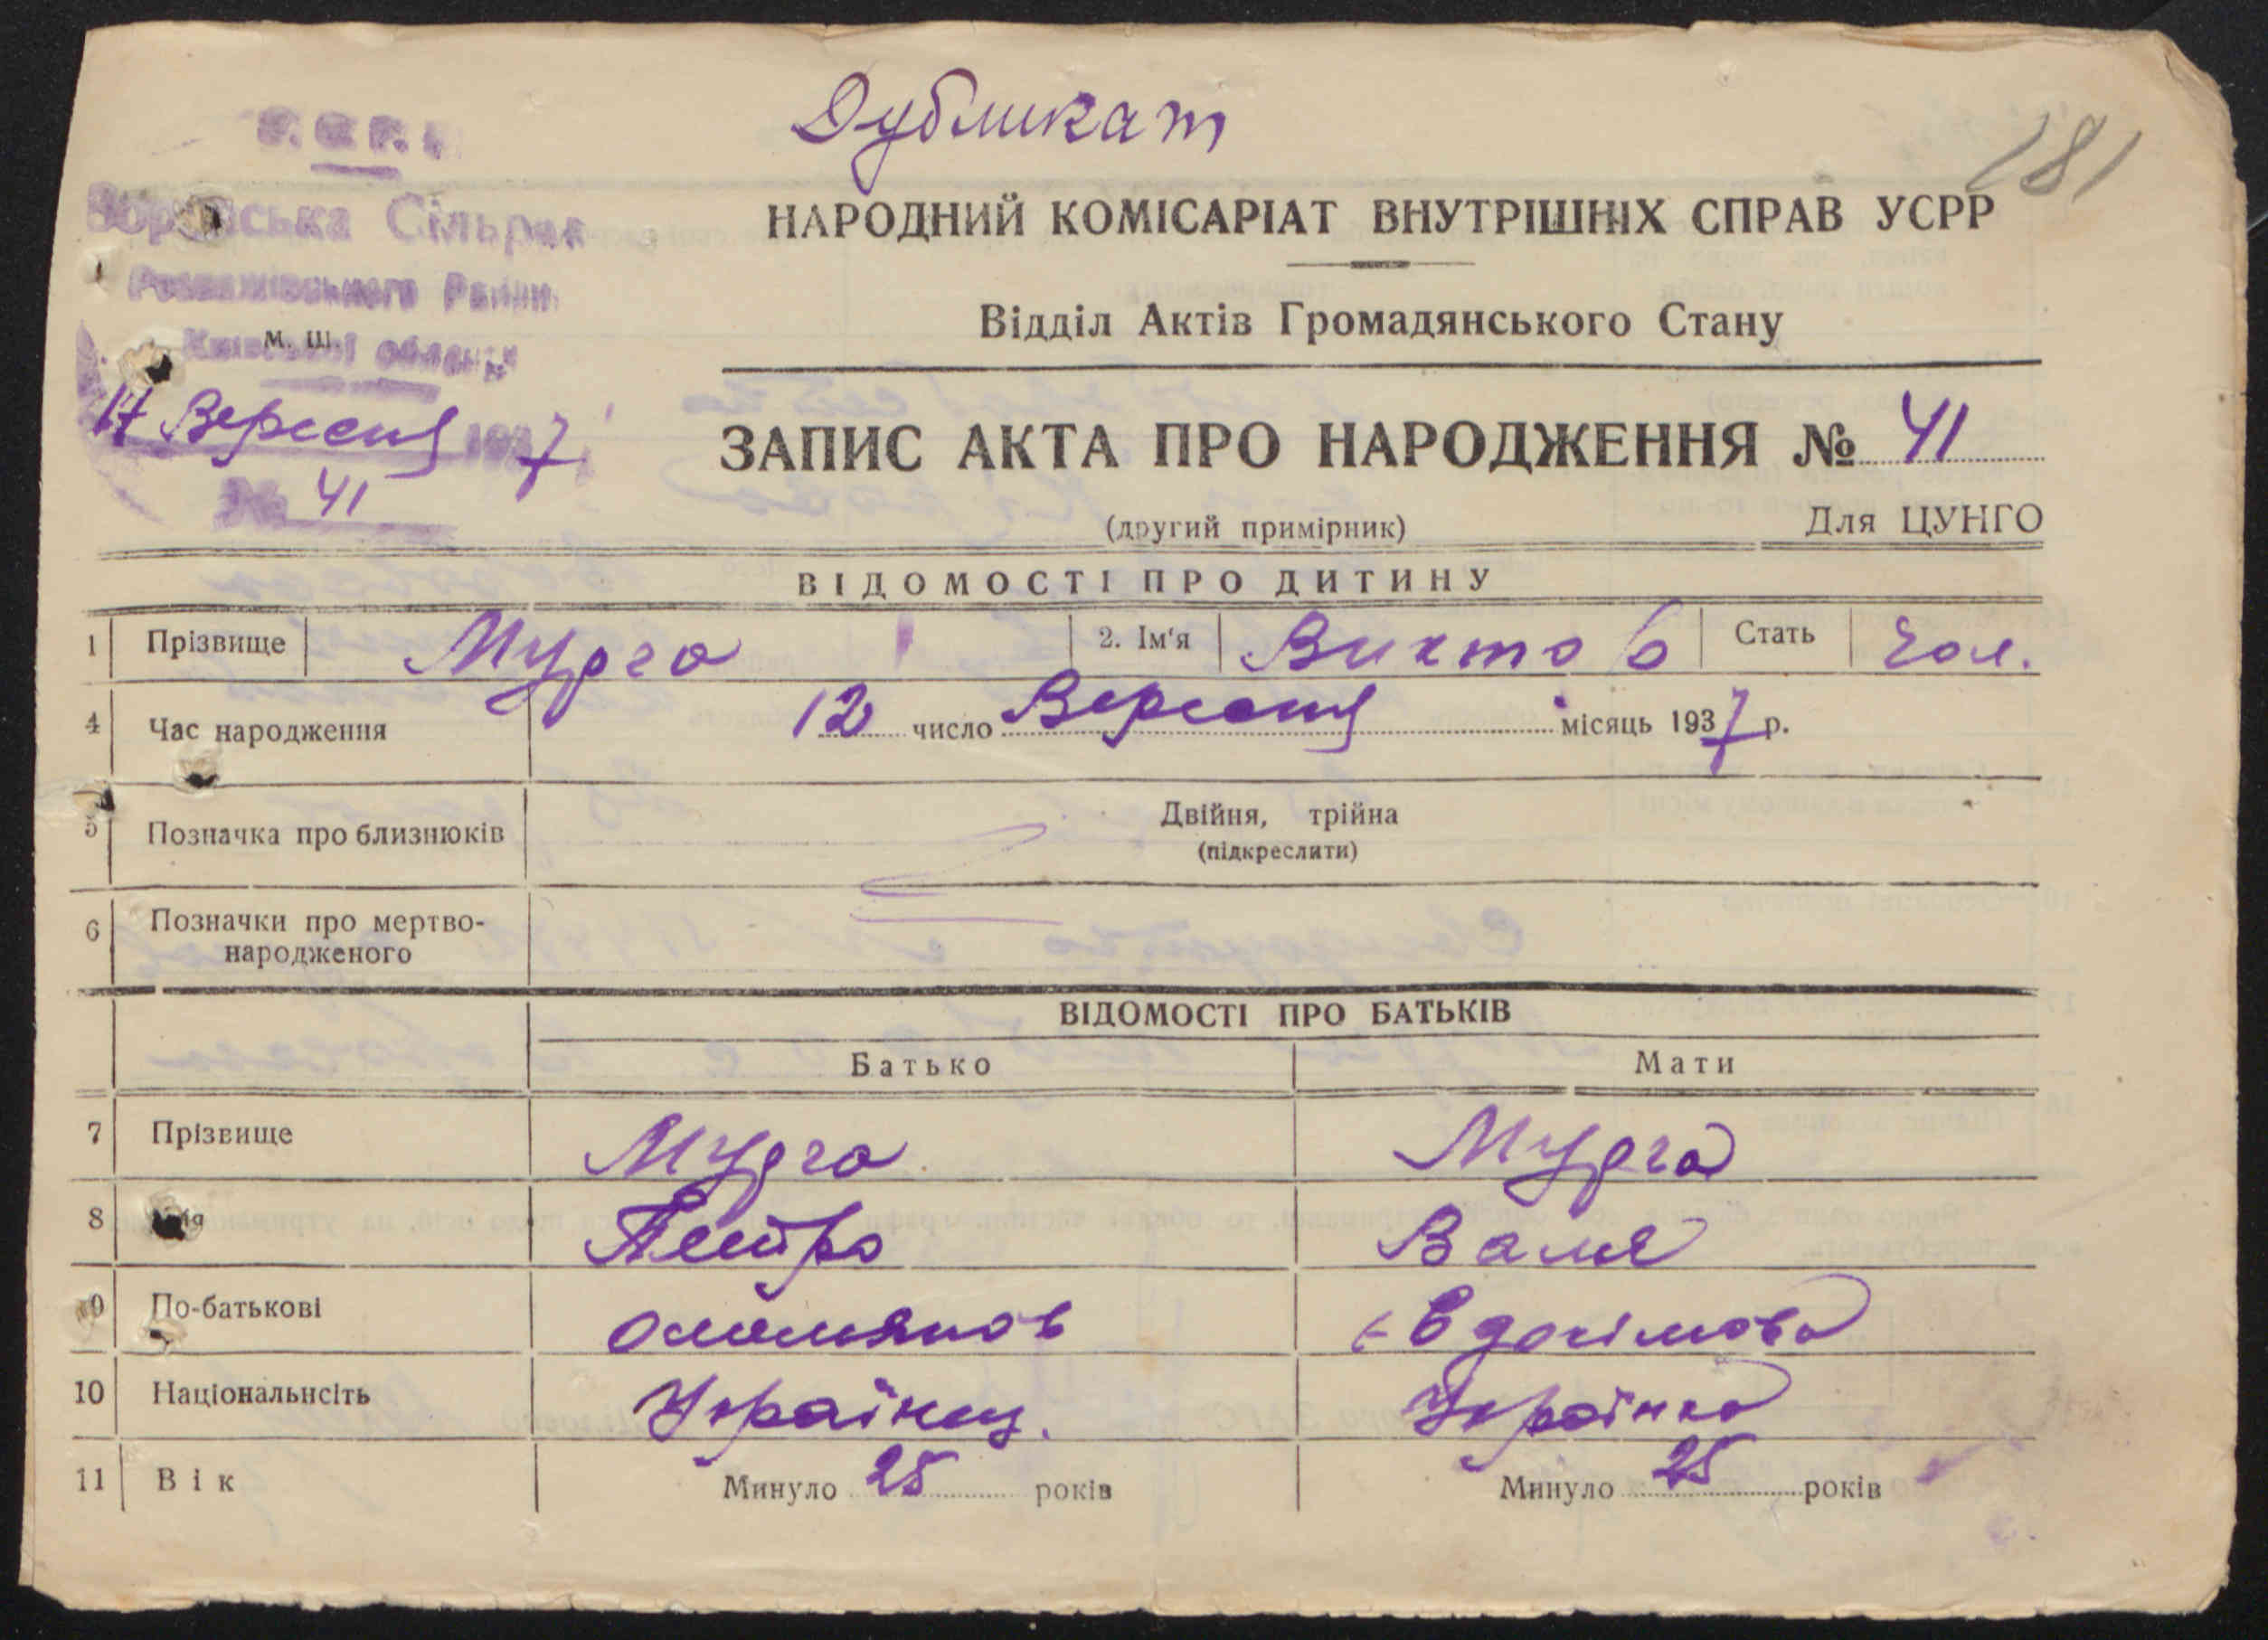 Дубликат
181
У.С.Р.Р.
Сільрада
Району
Київської області
М. Ш.
17 Вересня 1937
№ 41
НАРОДНИЙ КОМІСАРІАТ ВНУТРІШНІХ СПРАВ УСРР
Відділ Актів Громадянського Стану
ЗАПИС АКТА ПРО НАРОДЖЕННЯ № 41
(другий примірник) Для ЦУНГО
ВІДОМОСТІ ПРО ДИТИНУ
1 Прізвище Мурга 2. Ім'я Виктор Стать чол.
4 Час народження 12 число Вересня місяць 1937 р.
5 Позначка про близнюків Двійня, трійна
(підкреслити)
6 Позначки про мертво-
народженого
ВІДОМОСТІ ПРО БАТЬКІВ
Батько Мати
7 Прізвище Мурга Мурга
8 Петро Валя
9 По-батькові Євдокімова
10 Національнсіть Українец. Українка
11 Вік Минуло 25 років Минуло 25 років